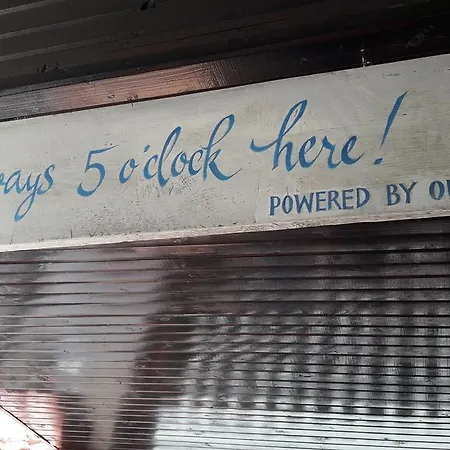 ays 5 o'clock here!
POWERED BY